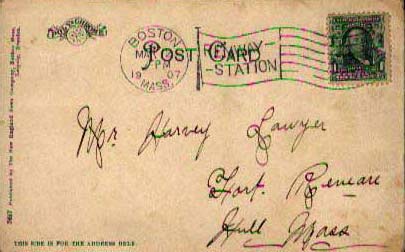 POLYCHROME
POST CARD
BOSTON
MASS.
1907
PM
STATION
Mr Harvey Lawyer
Fort Revere
Hull Mass
THIS SIDE IS FOR THE ADDRESS ONLY.
Published by The New England News Company, Boston, Mass.
Leipzig, Dresden.